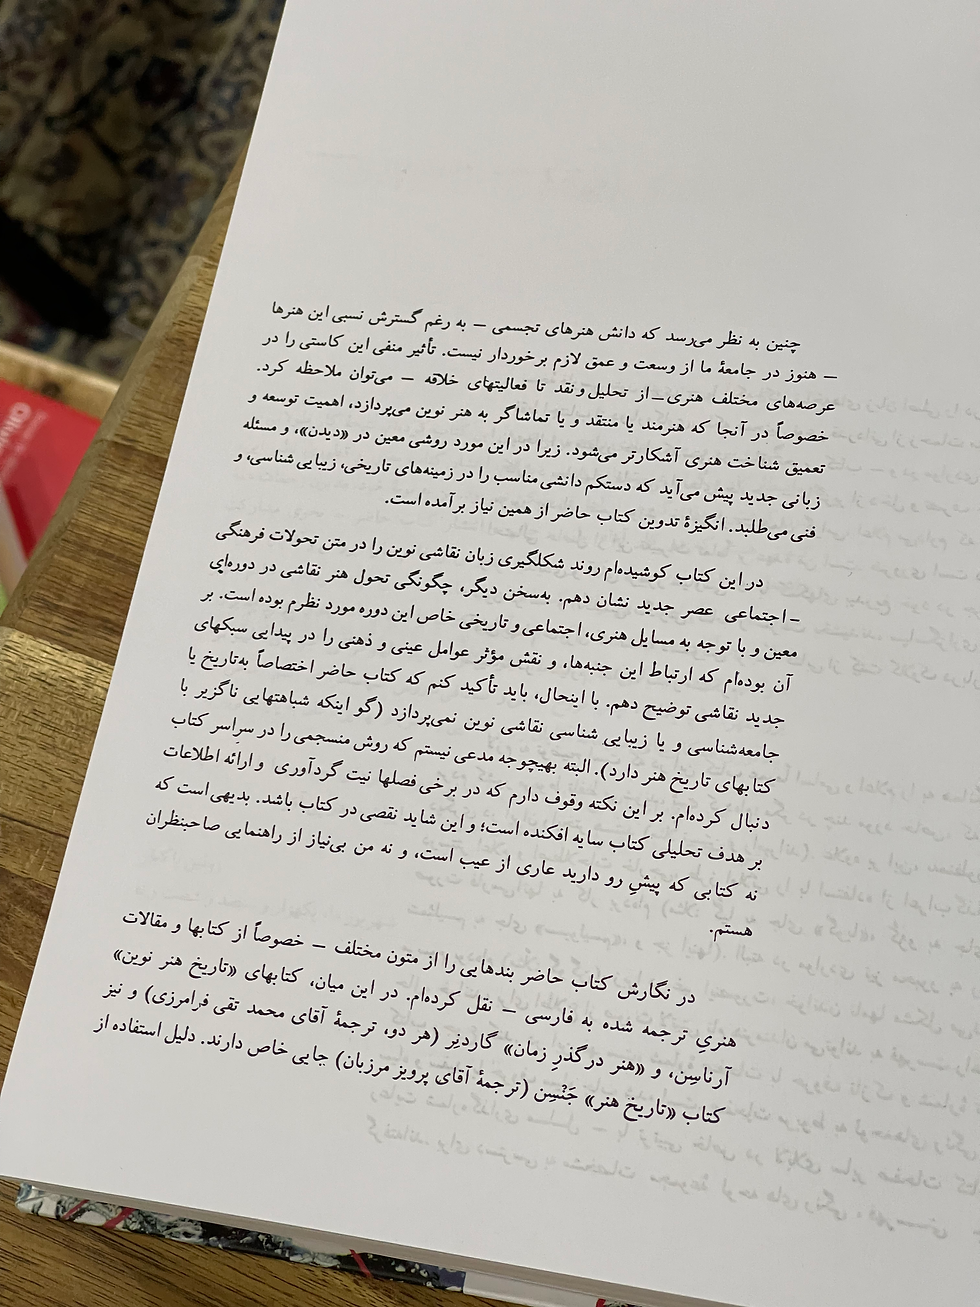 چنین به نظر می‌رسد که دانش هنرهای تجسمی – به رغم گسترش نسبی این هنرها
– هنوز در جامعهٔ ما از وسعت و عمق لازم برخوردار نیست. تأثیر منفی این کاستی را در
عرصه‌های مختلف هنری – از تحلیل و نقد تا فعالیتهای خلاقه – می‌توان ملاحظه کرد.
خصوصاً در آنجا که هنرمند یا منتقد و یا تماشاگر به هنر نوین می‌پردازد، اهمیت توسعه و
تعمیق شناخت هنری آشکارتر می‌شود. زیرا در این مورد روشی معین در «دیدن»، و مسئله
زبانی جدید پیش می‌آید که دستکم دانشی مناسب را در زمینه‌های تاریخی، زیبایی شناسی، و
فنی می‌طلبد. انگیزهٔ تدوین کتاب حاضر از همین نیاز برآمده است.
در این کتاب کوشیده‌ام روند شکلگیری زبان نقاشی نوین را در متن تحولات فرهنگی
– اجتماعی عصر جدید نشان دهم. به‌سخن دیگر، چگونگی تحول هنر نقاشی در دوره‌ای
معین و با توجه به مسایل هنری، اجتماعی و تاریخی خاص این دوره مورد نظرم بوده است. بر
آن بوده‌ام که ارتباط این جنبه‌ها، و نقش مؤثر عوامل عینی و ذهنی را در پیدایی سبکهای
جدید نقاشی توضیح دهم. با اینحال، باید تأکید کنم که کتاب حاضر اختصاصاً به‌تاریخ یا
جامعه‌شناسی و یا زیبایی شناسی نقاشی نوین نمی‌پردازد (گو اینکه شباهتهایی ناگزیر با
کتابهای تاریخ هنر دارد). البته بهیچوجه مدعی نیستم که روش منسجمی را در سراسر کتاب
دنبال کرده‌ام. بر این نکته وقوف دارم که در برخی فصلها نیت گردآوری و ارائه اطلاعات
بر هدف تحلیلی کتاب سایه افکنده است؛ و این شاید نقصی در کتاب باشد. بدیهی است که
نه کتابی که پیشِ رو دارید عاری از عیب است، و نه من بی‌نیاز از راهنمایی صاحبنظران
هستم.
در نگارش کتاب حاضر بندهایی را از متون مختلف – خصوصاً از کتابها و مقالات
هنریِ ترجمه شده به فارسی – نقل کرده‌ام. در این میان، کتابهای «تاریخ هنر نوین»
آرناسِن، و «هنر در گذرِ زمان» گاردنِر (هر دو، ترجمهٔ آقای محمد تقی فرامرزی) و نیز
کتاب «تاریخ هنر» جَنْسِن (ترجمهٔ آقای پرویز مرزبان) جایی خاص دارند. دلیل استفاده از